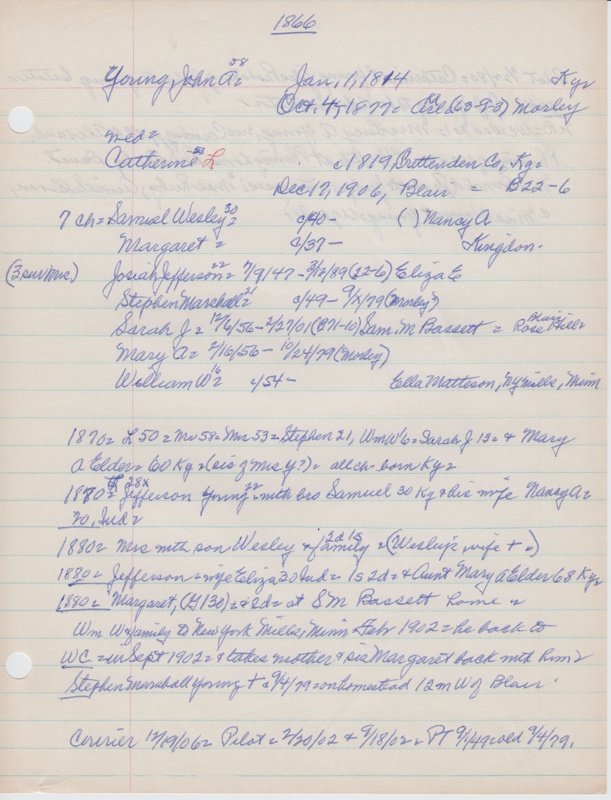 1866
Young, John A 58 = Jan, 1, 1814 Ky=
Oct. 4, 1877 = (63-9-3) Mosley
med =
Catherine 53 L c1819, Crittenden Co, Ky=
Dec 17, 1906, Blair = B22-6
7 ch = Samuel Wesley 30 = c/40 - ( ) Nancy A
Margaret = c/37 - Kingdon.
(3 sur/Mrs) Josiah Jefferson 22 = 7/9/47 - 3/12/89 (22-6) Eliza E
Stephen Marshall 21 = c/49 - 9/X/79 (Mosley)
Sarah J = 12/6/56 - 2/27/01 (B71-10) Sam. M Bassett = Blair Rose Hill=
Mary A = 2/16/56 - 10/24/79 (Mosley)
William W 16 = c/54 - Ella Matteson, NY Mills, Minn
1870 = L 50 = Mr 58 = Mrs 53 = Stephen 21, Wm W 16 = Sarah J 13 = & Mary
A Elder = 60 Ky = (sis of Mrs Y?) = all ch born Ky =
1870 = Jefferson Young 22 = with bro Samuel 30 Ky & his wife Nancy A =
30, Ind =
1880 = Mrs with son Wesley & family 2d 1s = (Wesley's wife + =)
1880 = Jefferson = wife Eliza 30 Ind = 1s 2d = & Aunt Mary A Elder 68 Ky
1880 = Margaret, (30) = & 2d = at S M Bassett home =
Wm W & family to New York Mills, Minn Feb 1902 = he back to
WC = in Sept 1902 = & takes mother & sis Margaret back with him =
Stephen Marshall Young + c 9/4/79 = on homestead 12 m W of Blair
Courier 12/19/06 = Pilot = 2/20/02 & 9/18/02 = PT 9/1/49 = old 9/4/79.